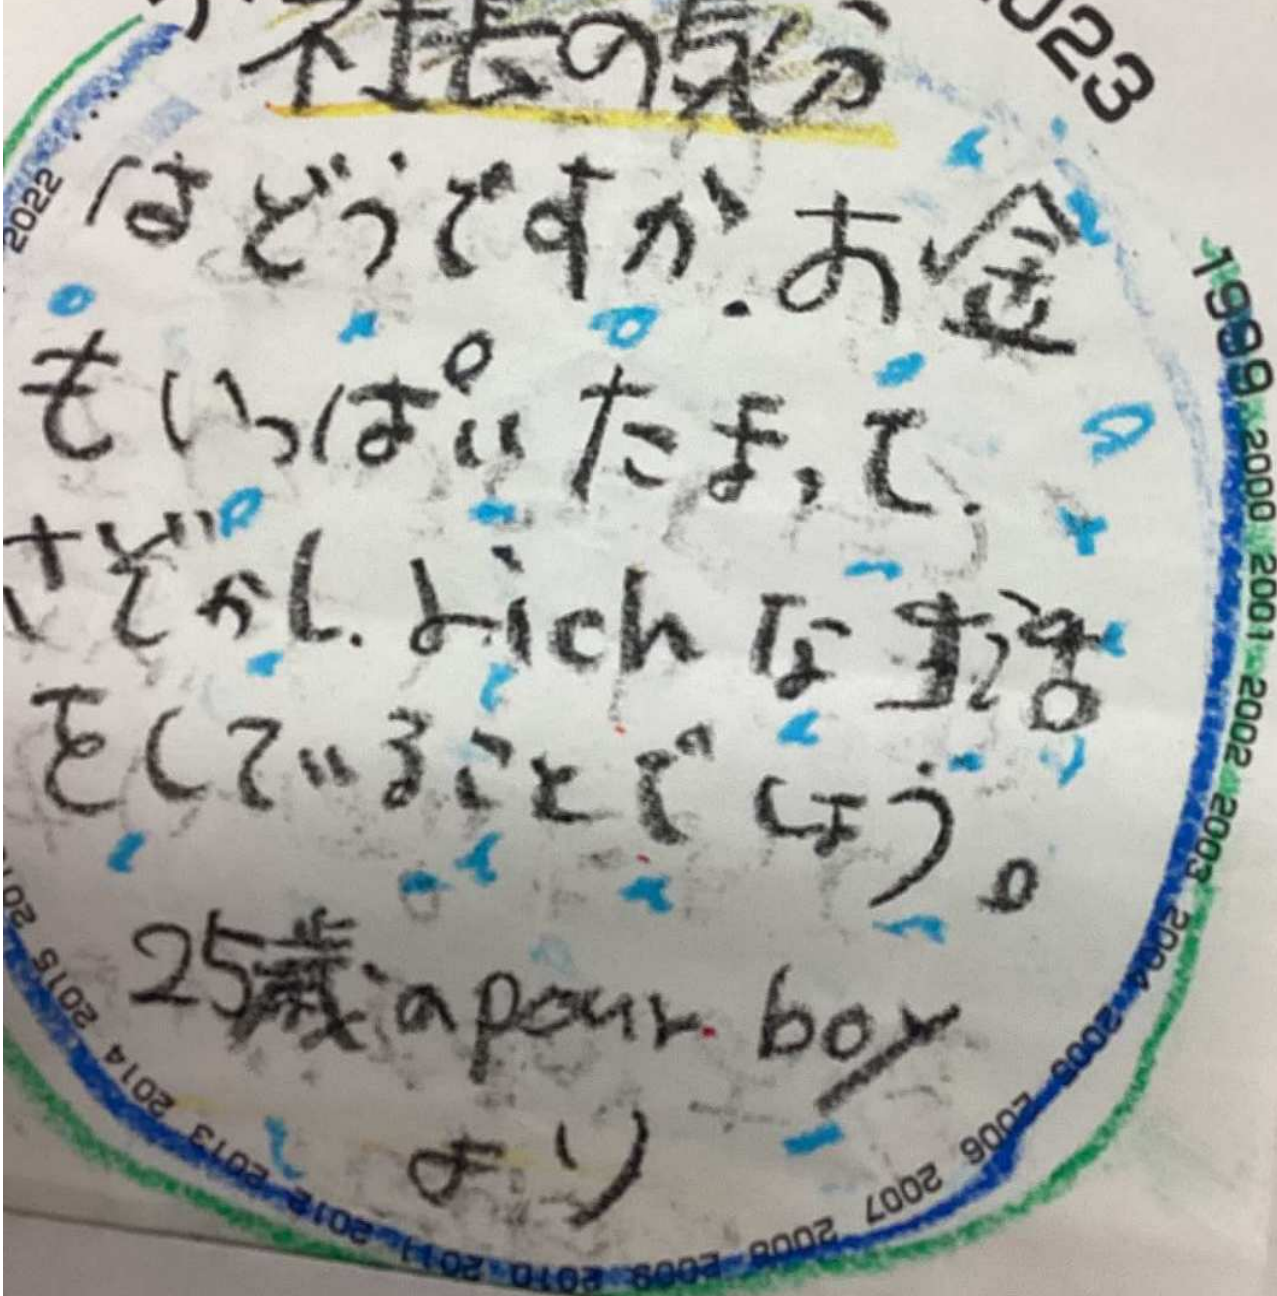 社長の気分
はどうですか.お金
もいっぱいたまって.
さぞかし.richな生活
をしていることでしょう。
25歳のpour boy
より
2023
1999 2000 2001 2002 2003 2004 2005 2006 2007 2008 2009 2010 2011 2012 2013 2014 2015
2022...